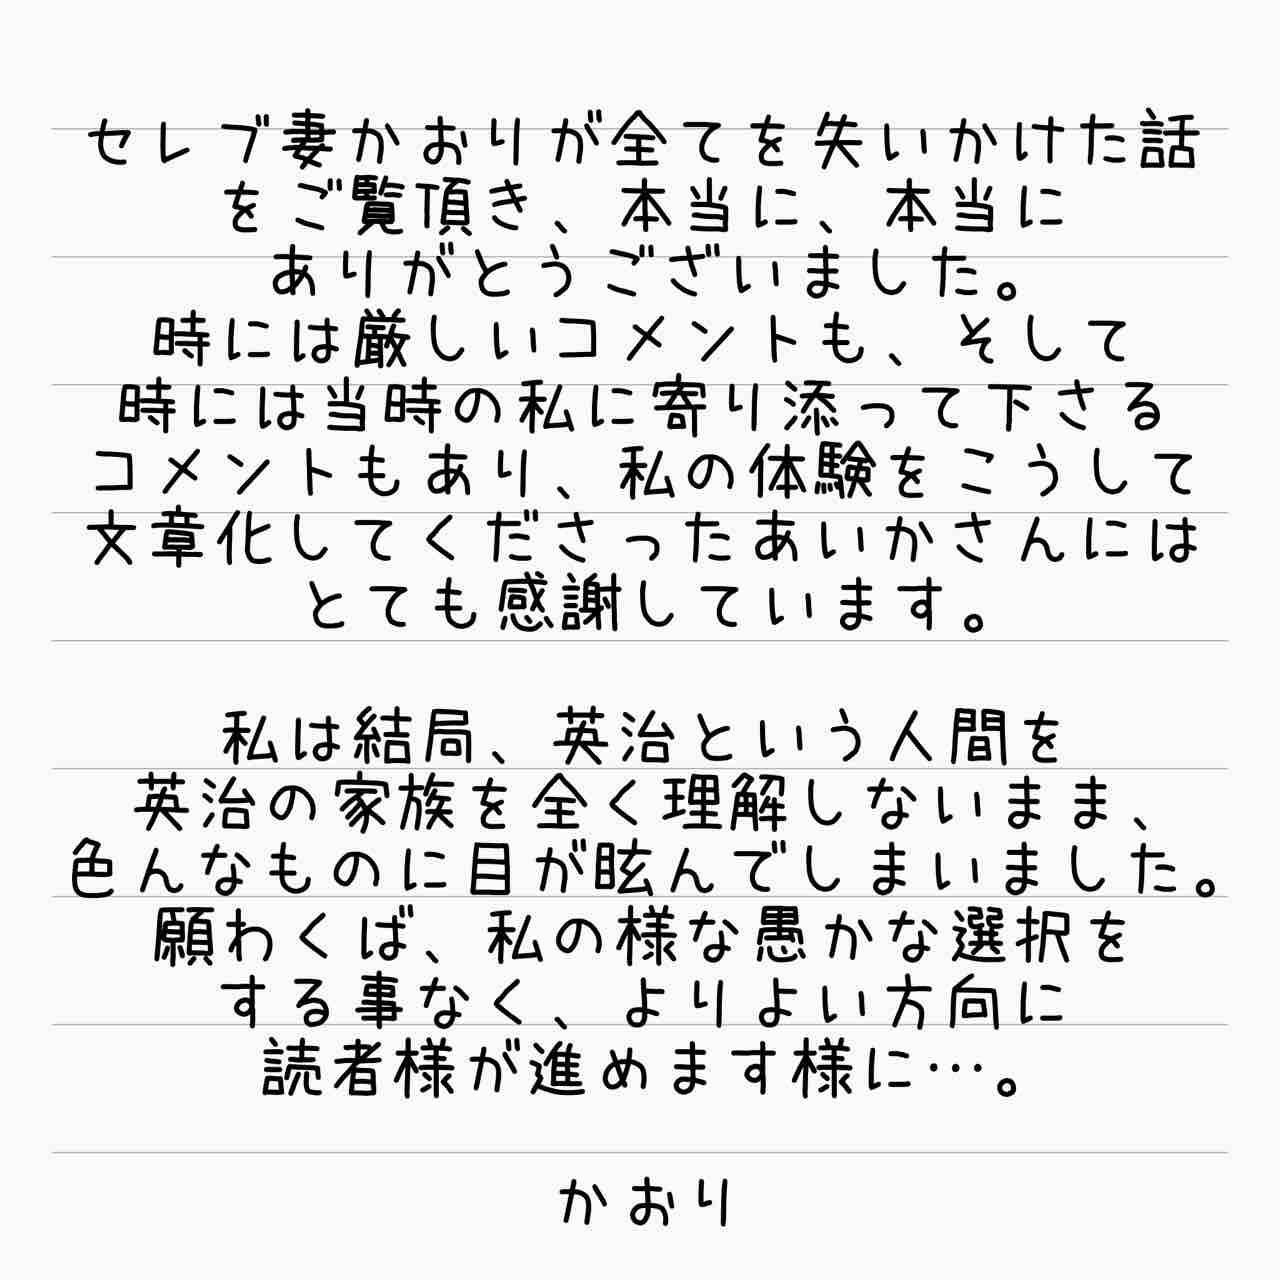 セレブ妻かおりが全てを失いかけた話
をご覧頂き、本当に、本当に
ありがとうございました。
時には厳しいコメントも、そして
時には当時の私に寄り添って下さる
コメントもあり、私の体験をこうして
文章化してくださったあいかさんには
とても感謝しています。
私は結局、英治という人間を
英治の家族を全く理解しないまま、
色んなものに目が眩んでしまいました。
願わくば、私の様な愚かな選択を
する事なく、よりよい方向に
読者様が進めます様に…。
かおり